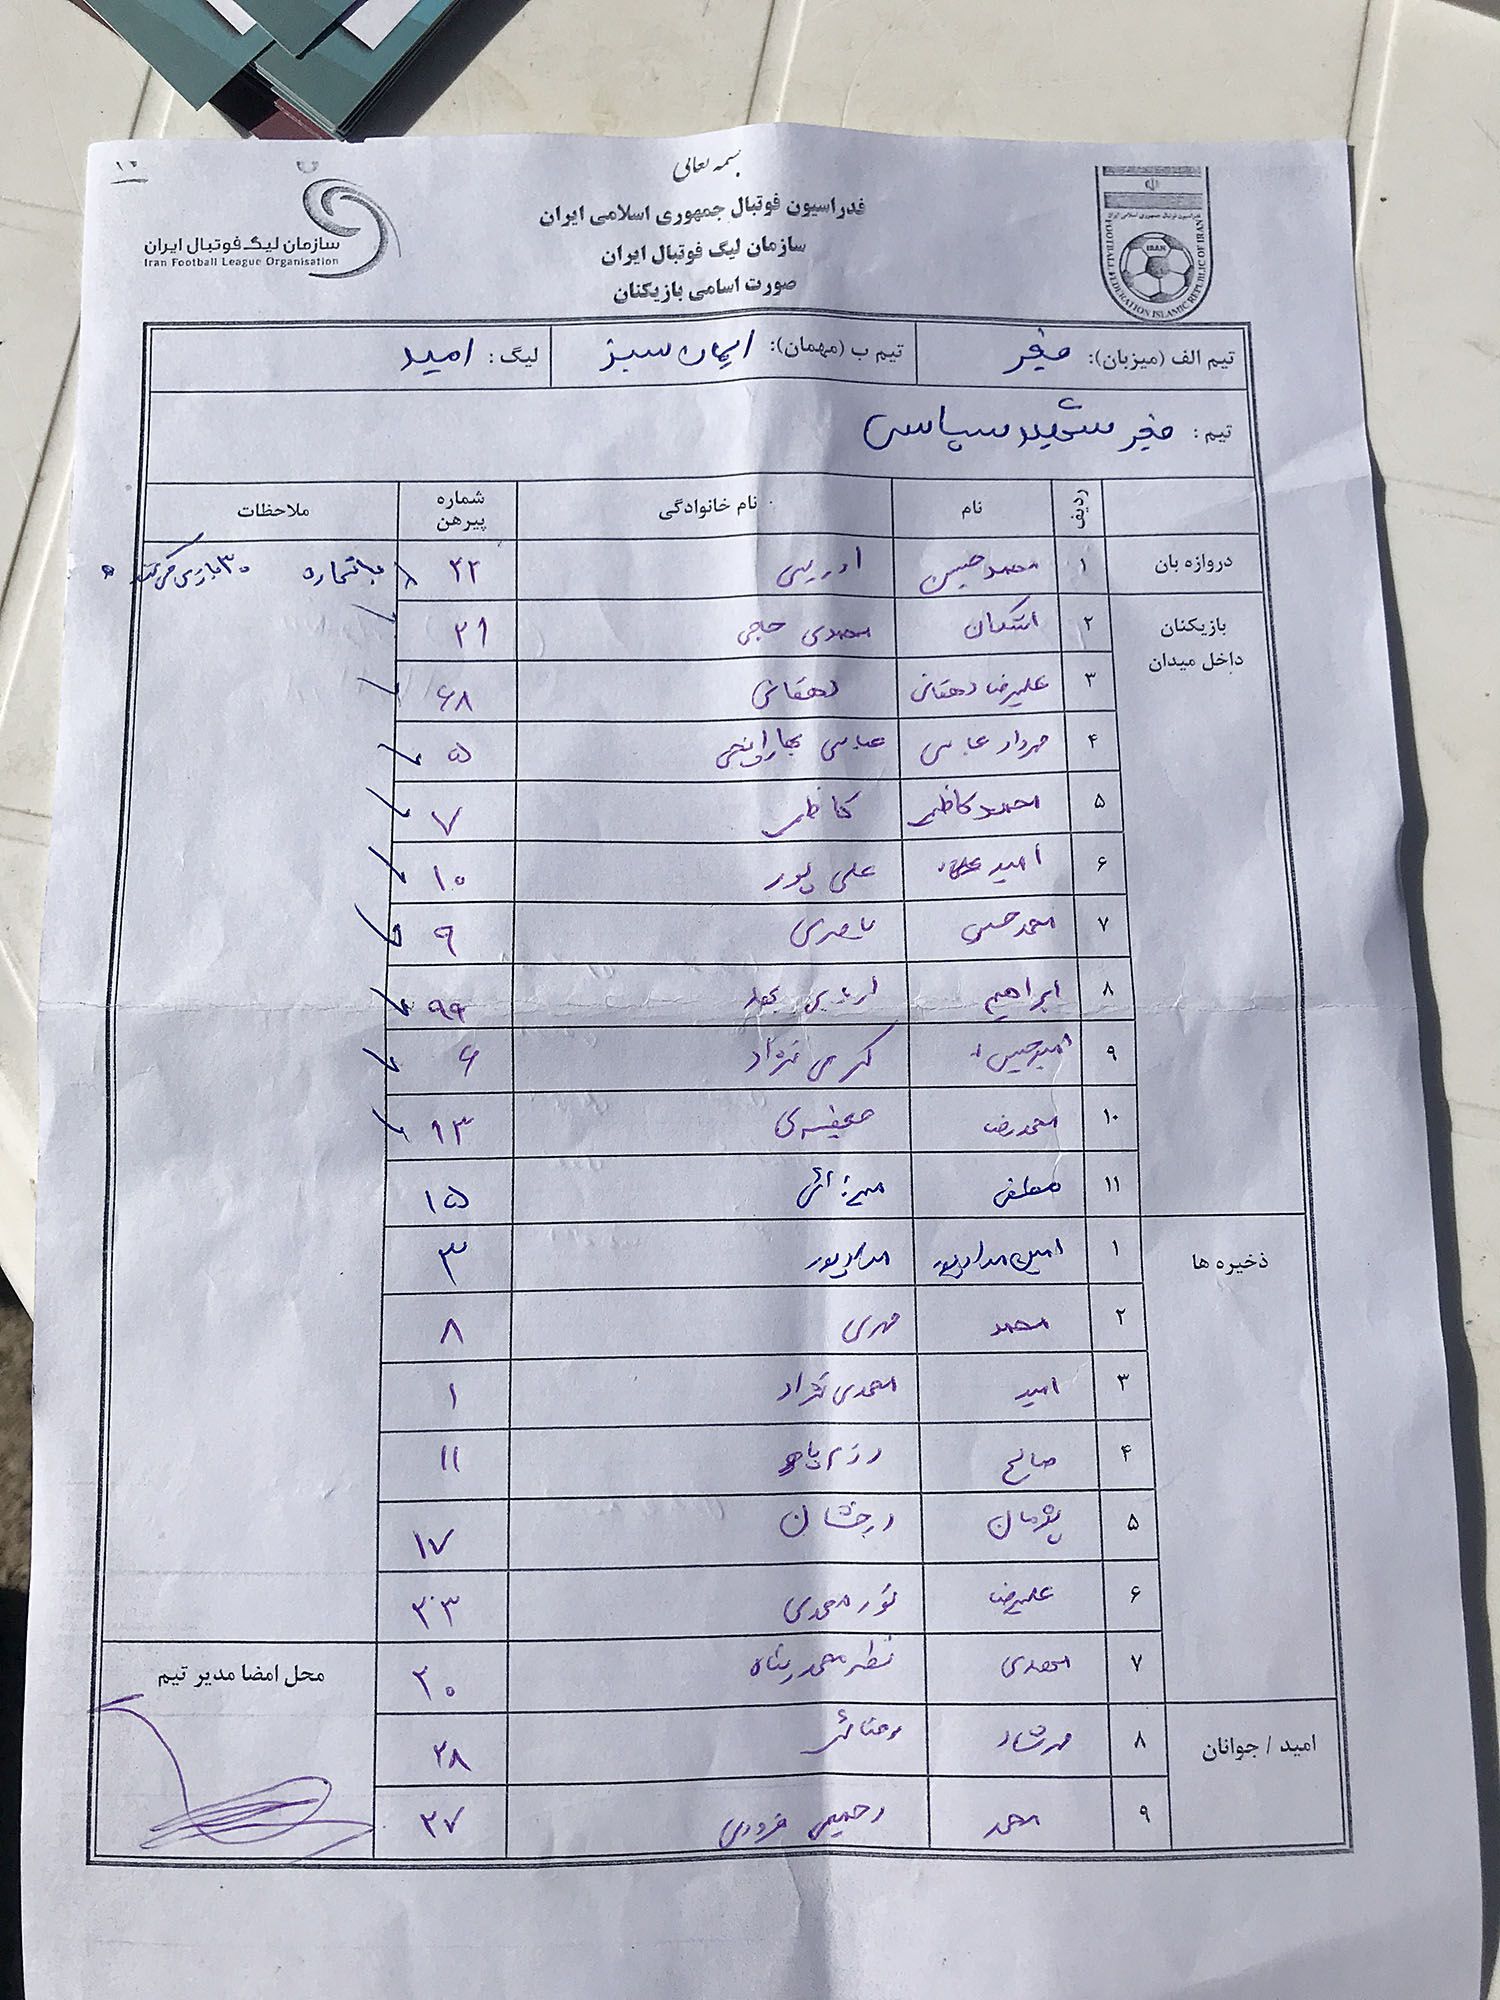 بسمه تعالی
فدراسیون فوتبال جمهوری اسلامی ایران
سازمان لیگ فوتبال ایران
صورت اسامی بازیکنان
سازمان لیگ فوتبال ایران
Iran Football League Organisation
فدراسیون فوتبال جمهوری اسلامی ایران
IRAN
FOOTBALL FEDERATION ISLAMIC REPUBLIC OF IRAN
تیم الف (میزبان): فجر تیم ب (مهمان): ایمان سبز لیگ: امید
تیم: فجر شهید سپاسی
ردیف نام نام خانوادگی شماره پیرهن ملاحظات
دروازه بان ۱ محمد حسین ادریسی ۲۲ با شماره ۳۰ بازی
بازیکنان داخل میدان ۲ اشکان محمدی حاجی ۲۱
۳ علیرضا دهقانی دهقانی ۶۸
۴ مهرداد عباسی عباسی ۵
۵ محمد کاظمی کاظمی ۷
۶ امید علی پور ۱۰
۷ محمد حسین ناصری ۹
۸ ابراهیم ۹۹
۹ امیرحسین کرمی نژاد ۶
۱۰ محمدرضا ۱۳
۱۱ مصطفی میرزائی ۱۵
ذخیره ها ۱ امین مرادپور مرادپور ۳
۲ محمد مهدی ۸
۳ امید احمدی نژاد ۱
۴ صالح ۱۱
۵ پژمان درخشان ۱۷
۶ علیرضا نورمحمدی ۲۳
۷ مهدی نظر محمد پناه ۲۰
امید / جوانان ۸ مهرشاد ۲۸
۹ محمد رحیمی ۲۷
محل امضا مدیر تیم